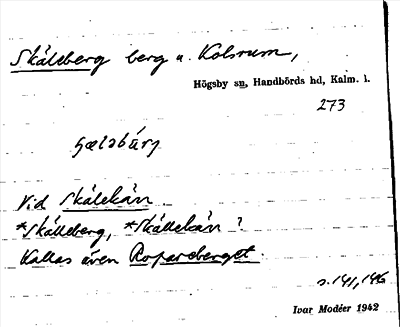 Skäleberg berg u. Kolsrum,
Högsby sn, Handbörds hd, Kalm. l.
273
Vid Skälekån.
*Skälleberg, *Skällekån ?
Kallas även Ropareberget.
s. 141, 146
Ivar Modéer 1942